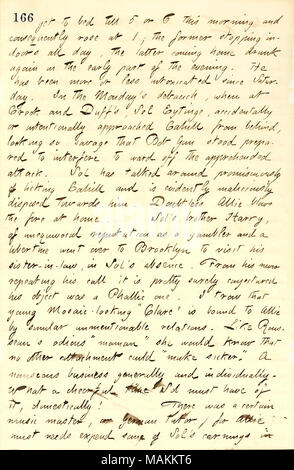 166
get to bed till 5 or 6 this morning and
consequently rose at 1; the former stopping in-
doors all day, the latter coming home drunk
again in the early part of the evening. He
has been more or less intoxicated since Satur-
day. In the Monday's debauch, when at
Crook and Duff's Sol Eytinge, accidentally
or intentionally approached Cahill from behind,
looking so savage that Bob Gun stood prepa-
red to interfere to ward off the apprehended
attack. Sol has talked around promiscuously
of licking Cahill and is evidently maliciously
disposed towards him. Doubtless Allie
the fire at home. Sol's brother Harry,
of reputation as a gambler and a
libertine went over to Brooklyn to visit his
sister-in-law, in Sol's absence. From his never
repeating his call it is pretty surely conjectured
his object was a Phallic one. I trow that
young Mosaic-looking "Clare" is bound to Allie
by similar unmentionable relations. Like Rous-
seau's odious "maman" she would know that
no other attachment could "make sicker." A
nauseous business generally and individually.
What a cheerful time I'd must have of
it, domestically! There was a certain
music master, or German tutor, for Allie
must needs expend some of Sol's earnings in
alamy stock photo